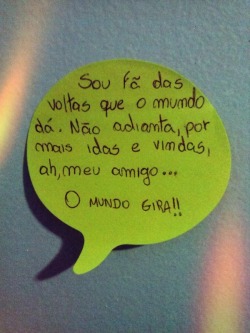 Sou fã das
voltas que o mundo
dá. Não adianta, por
mais idas e vindas,
ah, meu amigo...
O MUNDO GIRA!!